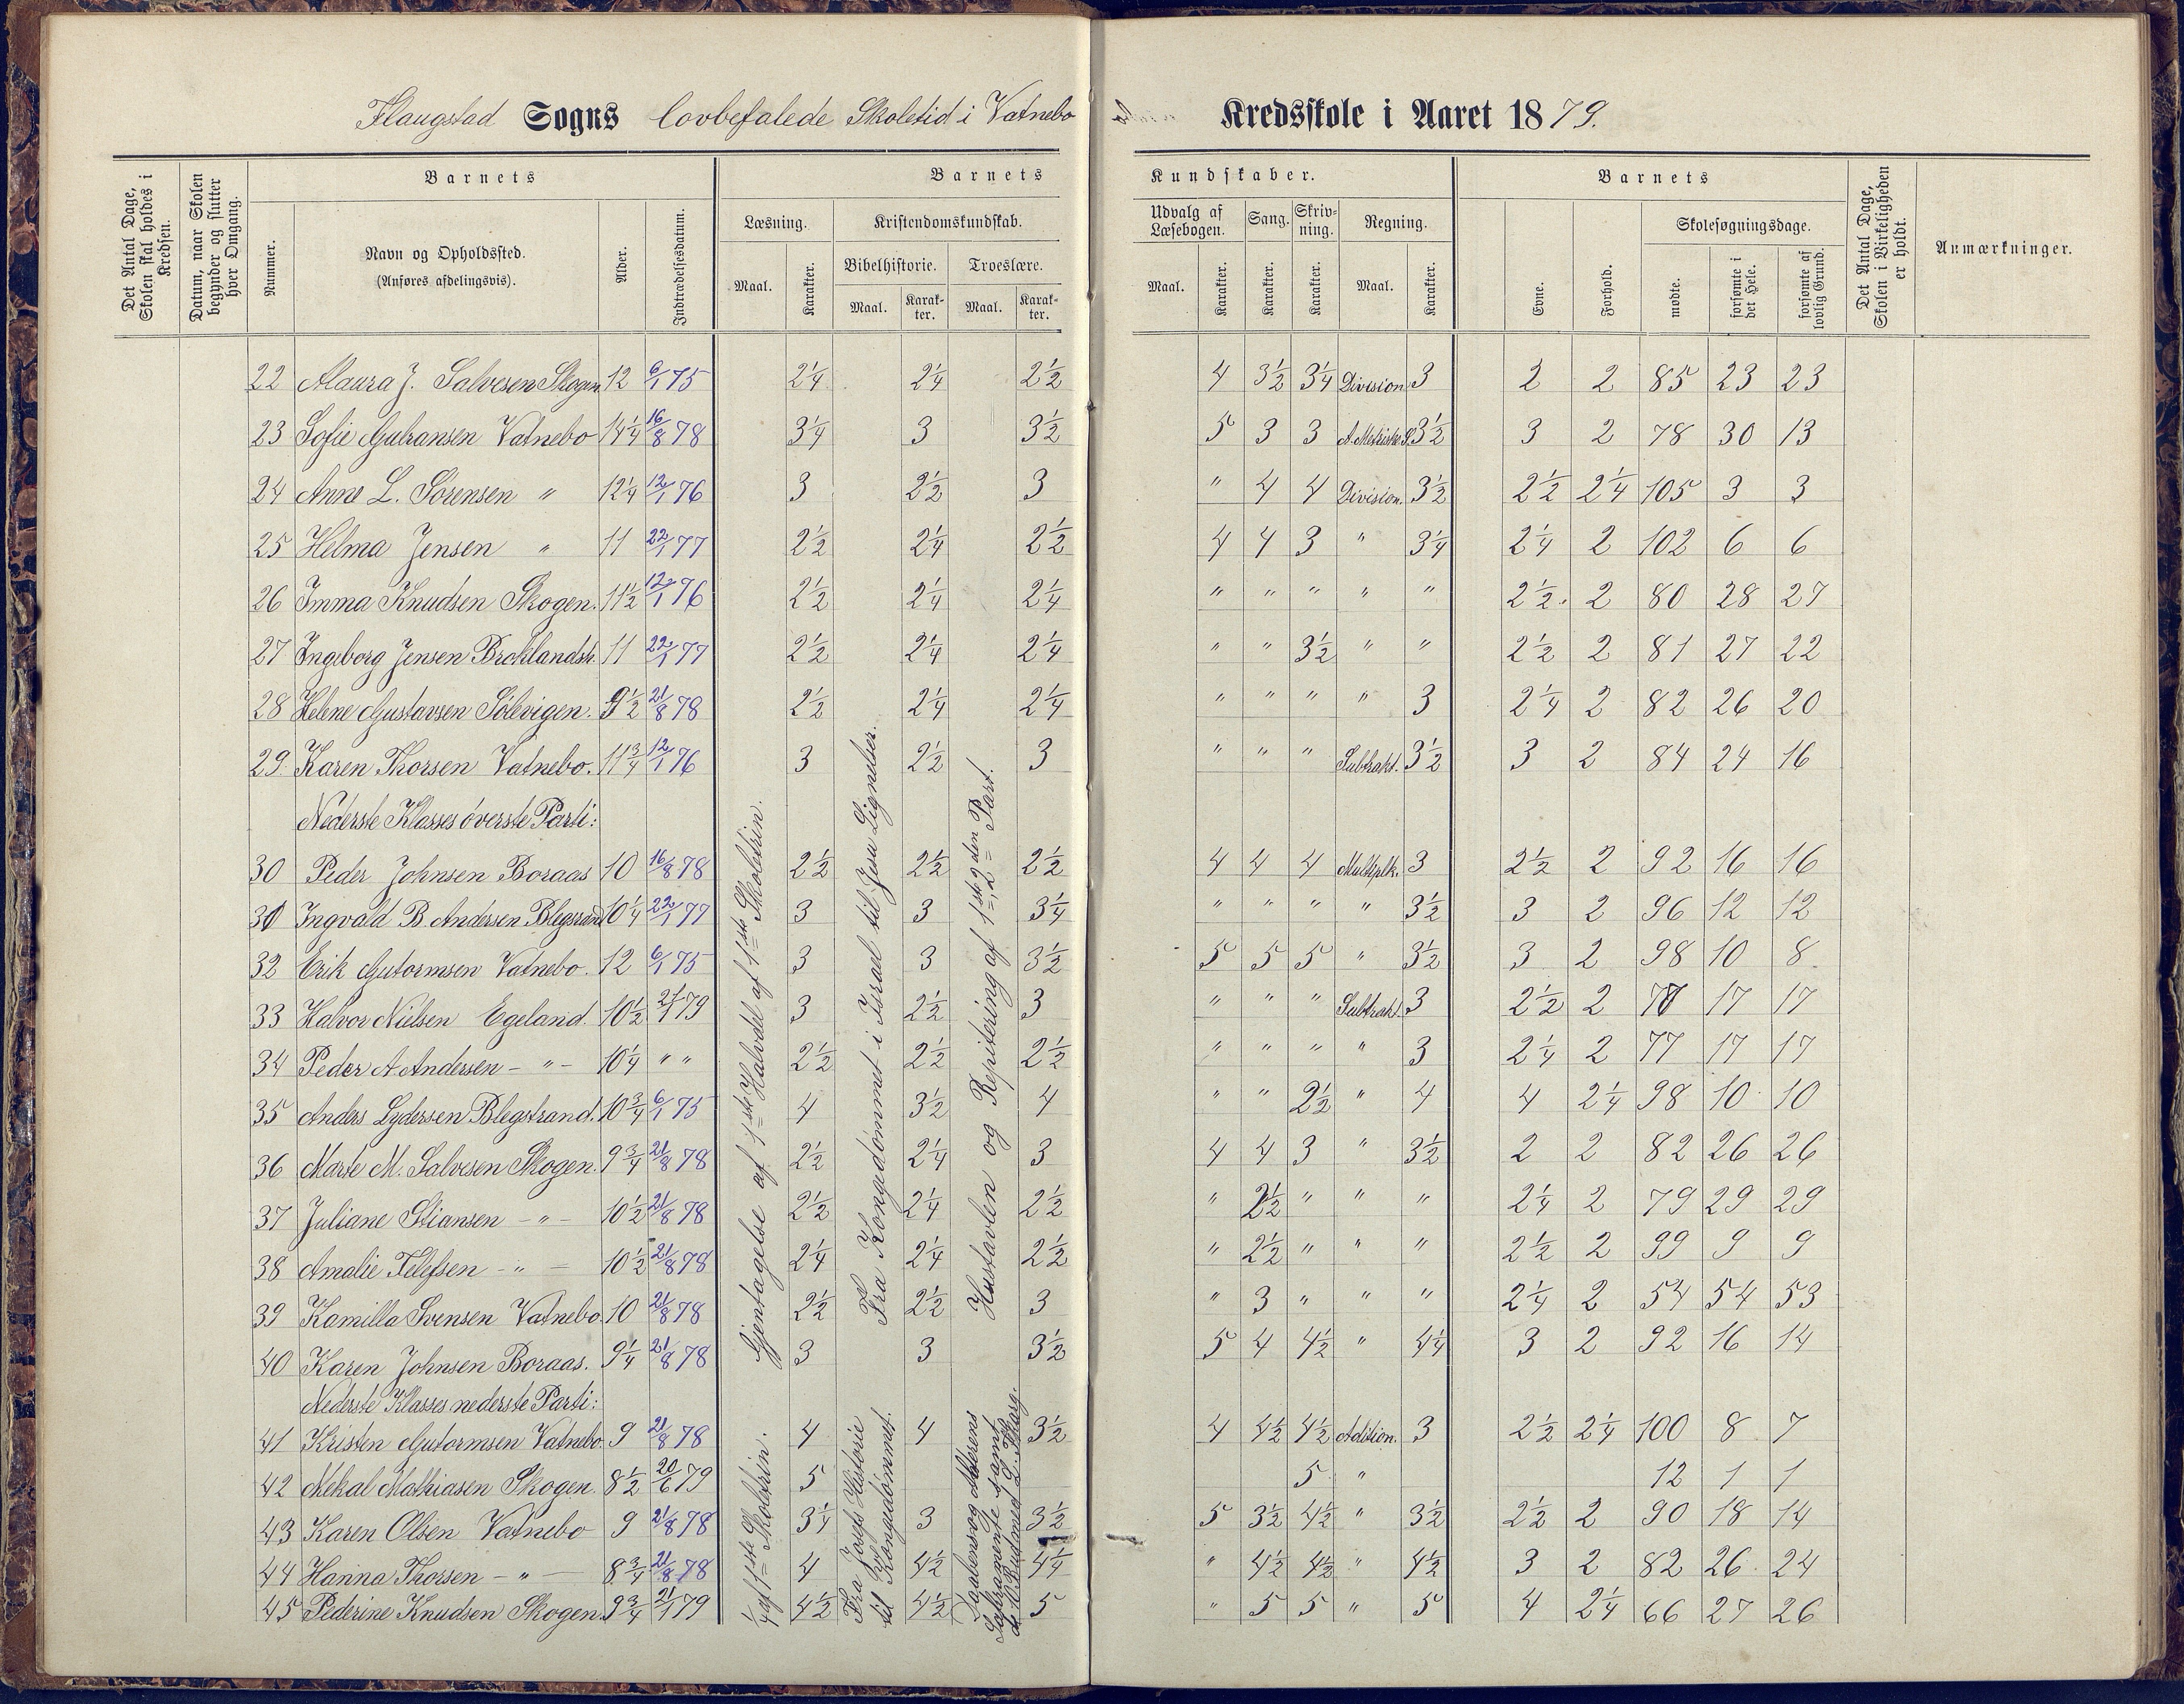 Flaugstad Sogns lovbefalede Skoletid i Vatnebo Kredsskole i Aaret 1879.
Det Antal Dage, Skolen skal holdes i Kredsen.
Datum, naar Skolen begynder og slutter hver Omgang.
Barnets
Nummer.
Navn og Opholdssted.
(Anføres afdelingsvis).
Alder.
Indtrædelsesdatum.
Barnets Kundskaber.
Læsning.
Maal. Karakter.
Kristendomskundskab.
Bibelhistorie. Troeslære.
Maal. Karakter. Maal. Karakter.
Udvalg af Læsebogen. Sang. Skrivning. Regning.
Maal. Karakter. Karakter. Karakter. Maal. Karakter.
Barnets
Evne. Forhold.
Skolesøgningsdage.
mødte. forsømte i det Hele. forsømte af lovlig Grund.
Det Antal Dage, Skolen i Virkeligheden er holdt.
Anmærkninger.
22 Maura J. Salvesen Skogen 12 6/1 75 2¼ 2¼ 2½ 4 3½ 3¼ Division 3 2 2 85 23 23
23 Sofie Gulransen Vatnebo 14¼ 16/8 78 3¼ 3 3½ 5 3 3 A. Metriske S. 3½ 3 2 78 30 13
24 Anne L. Sørensen " 12¼ 12/1 76 3 2½ 3 " 4 4 Division. 3½ 2½ 2¼ 105 3 3
25 Helma Jensen " 11 22/1 77 2½ 2¼ 2½ 4 4 3 " 3¼ 2¼ 2 102 6 6
26 Imma Knudsen Skogen. 11½ 12/1 76 2½ 2¼ 2¼ " " " " " 2½. 2 80 28 27
27 Ingeborg Jensen Broklandsh. 11 22/1 77 2½ 2¼ 2¼ " " 3½ " " 2½ 2 81 27 22
28 Helene Gustavsen Sølevigen. 9½ 21/8 78 2½ 2¼ 2¼ " " " " 3 2¼ 2 82 26 20
29. Karen Thorsen Vatnebo. 11¾ 12/1 76 3 2½ 3 " " " Subtrakt. 3½ 3 2 84 24 16
Nederste Klasses øverste Parti:
30 Peder Johnsen Boraas 10 16/8 78 2½ 2½ 2½ 4 4 4 Multiplk. 3 2½ 2 92 16 16
31 Ingvald B. Andersen Blegstrand 10¼ 22/1 77 3 3 3¼ " " " " 3½ 3 2 96 12 12
32 Erik Gutormsen Vatnebo. 12 6/1 75 3 3 3½ 5 5 5 " 3½ 3 2 98 10 8
33 Halvor Nilsen Egeland. 10½ 21/1 79 3 2½ 3 " " " Subtrakt. 3 2½ 2 77 17 17
34 Peder A. Andersen - " - 10¼ " " 2½ 2½ 2½ " " " " 3 2¼ 2 77 17 17
35 Anders Lydersen Blegstrand. 10¾ 6/1 75 4 3½ 4 " " 2½ " 4 4 2¼ 98 10 10
36 Marte M. Salvesen Skogen. 9¾ 21/8 78 2½ 2¼ 3 4 4 3 " 3½ 2 2 82 26 26
37 Juliane Stiansen - " - 10½ 21/8 78 2½ 2¼ 2½ " 2½ " " " 2¼ 2 79 29 29
38 Amalie Telefsen - " - 10½ 21/8 78 2¼ 2¼ 2½ " 2½ " " " 2½ 2 99 9 9
39 Kamilla Svensen Vatnebo. 10 21/8 78 2½ 2½ 3 " 3 " " " 2¼ 2 54 54 53
40 Karen Johnsen Boraas. 9¼ 21/8 78 3 3 3½ 5 4 4½ " 4¼ 3 2 92 16 14
Nederste Klasses nederste Parti:
41 Kristen Gutormsen Vatnebo. 9 21/8 78 4 4 3½ 4 4½ 4½ Adition. 3 2½ 2¼ 100 8 7
42 Mekal Mathiasen Skogen. 8½ 20/6 79 5 5 " 12 1 1
43 Karen Olsen Vatnebo 9 21/8 78 3¼ 3 3½ 5 3½ 4½ " 3½ 2½ 2 90 18 14
44 Hanna Thorsen - " - 8¾ 21/8 78 4 4½ 4¼ " 4½ 4½ " 4½ 3 2 82 26 24
45 Pederine Knudsen Skogen. 9¾ 21/1 79 4½ 4½ 5 " 5 5 " 5 4 2¼ 66 27 26
Gjentagelse af 1ste Halvdel af 1ste Skoletrin.
Fra Kongedømmet i Israel til Jesu Lignelser.
Hustavlen og Repitering af 1ste og 2den Part.
¼ af 1ste Skoletrin.
Fra Josefs Historie
til Kongedømmet.
Daabens og Alterens
Sakramente samt
de 10 Bud med L. Forkl.